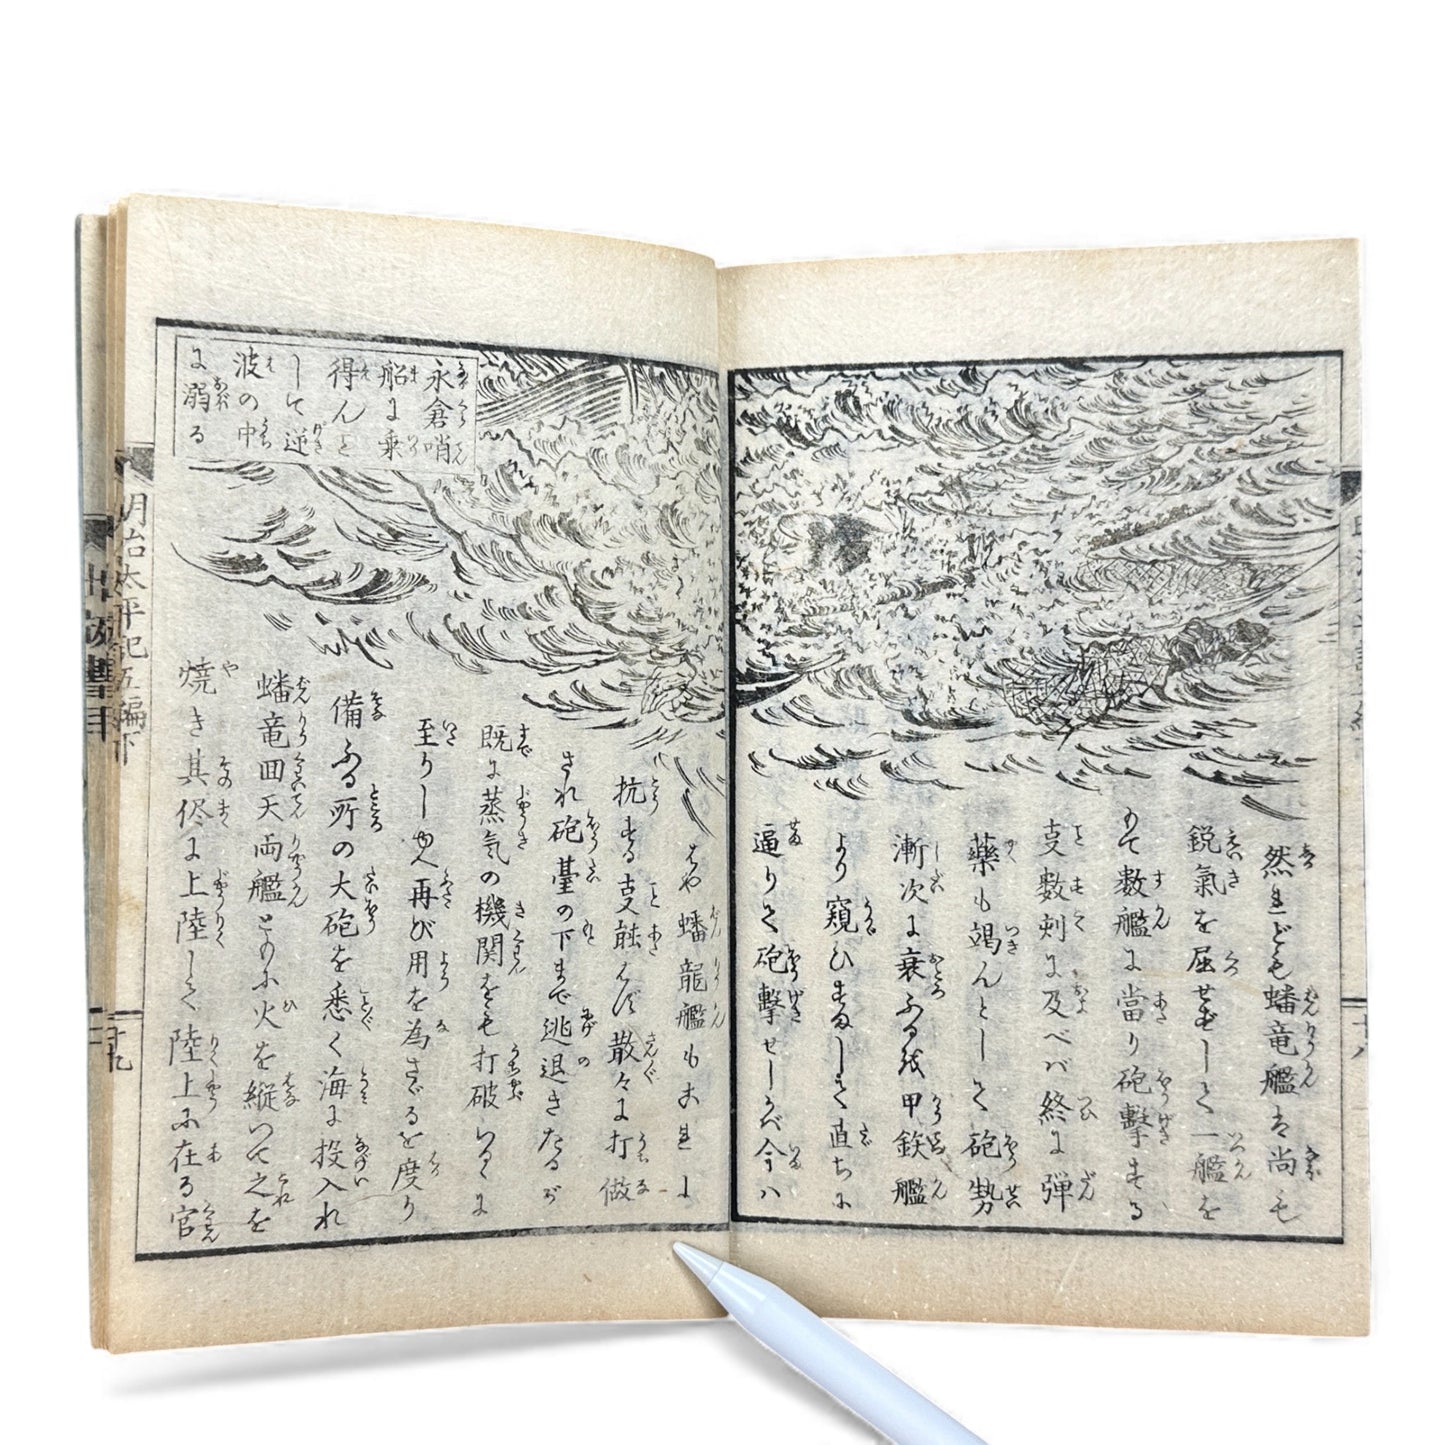 然れども蟠竜艦は尚も
鋭氣を屈せずして一艦を
もて数艦に當り砲撃する
支数刻に及べバ終に弾
薬も竭んとして砲勢
漸次に衰ふる残甲鉄艦
より窺ひすまして直ちに
逼りて砲撃せしかバ今ハ
はや蟠龍艦もこれに
抗する支能はず散々に打做
され砲臺の下まで逃退きたるが
既に蒸気の機関をも打破らるゝに
至りしゆへ再び用を為さゞるを度り
備ふる所の大砲を悉く海に投入れ
蟠竜回天両艦ともに火を縦つて之を
焼き其侭に上陸して陸上に在る官
永倉哨
船に乗
得んと
して逆
波の中
に溺る
明治太平記五編下
十九
十八